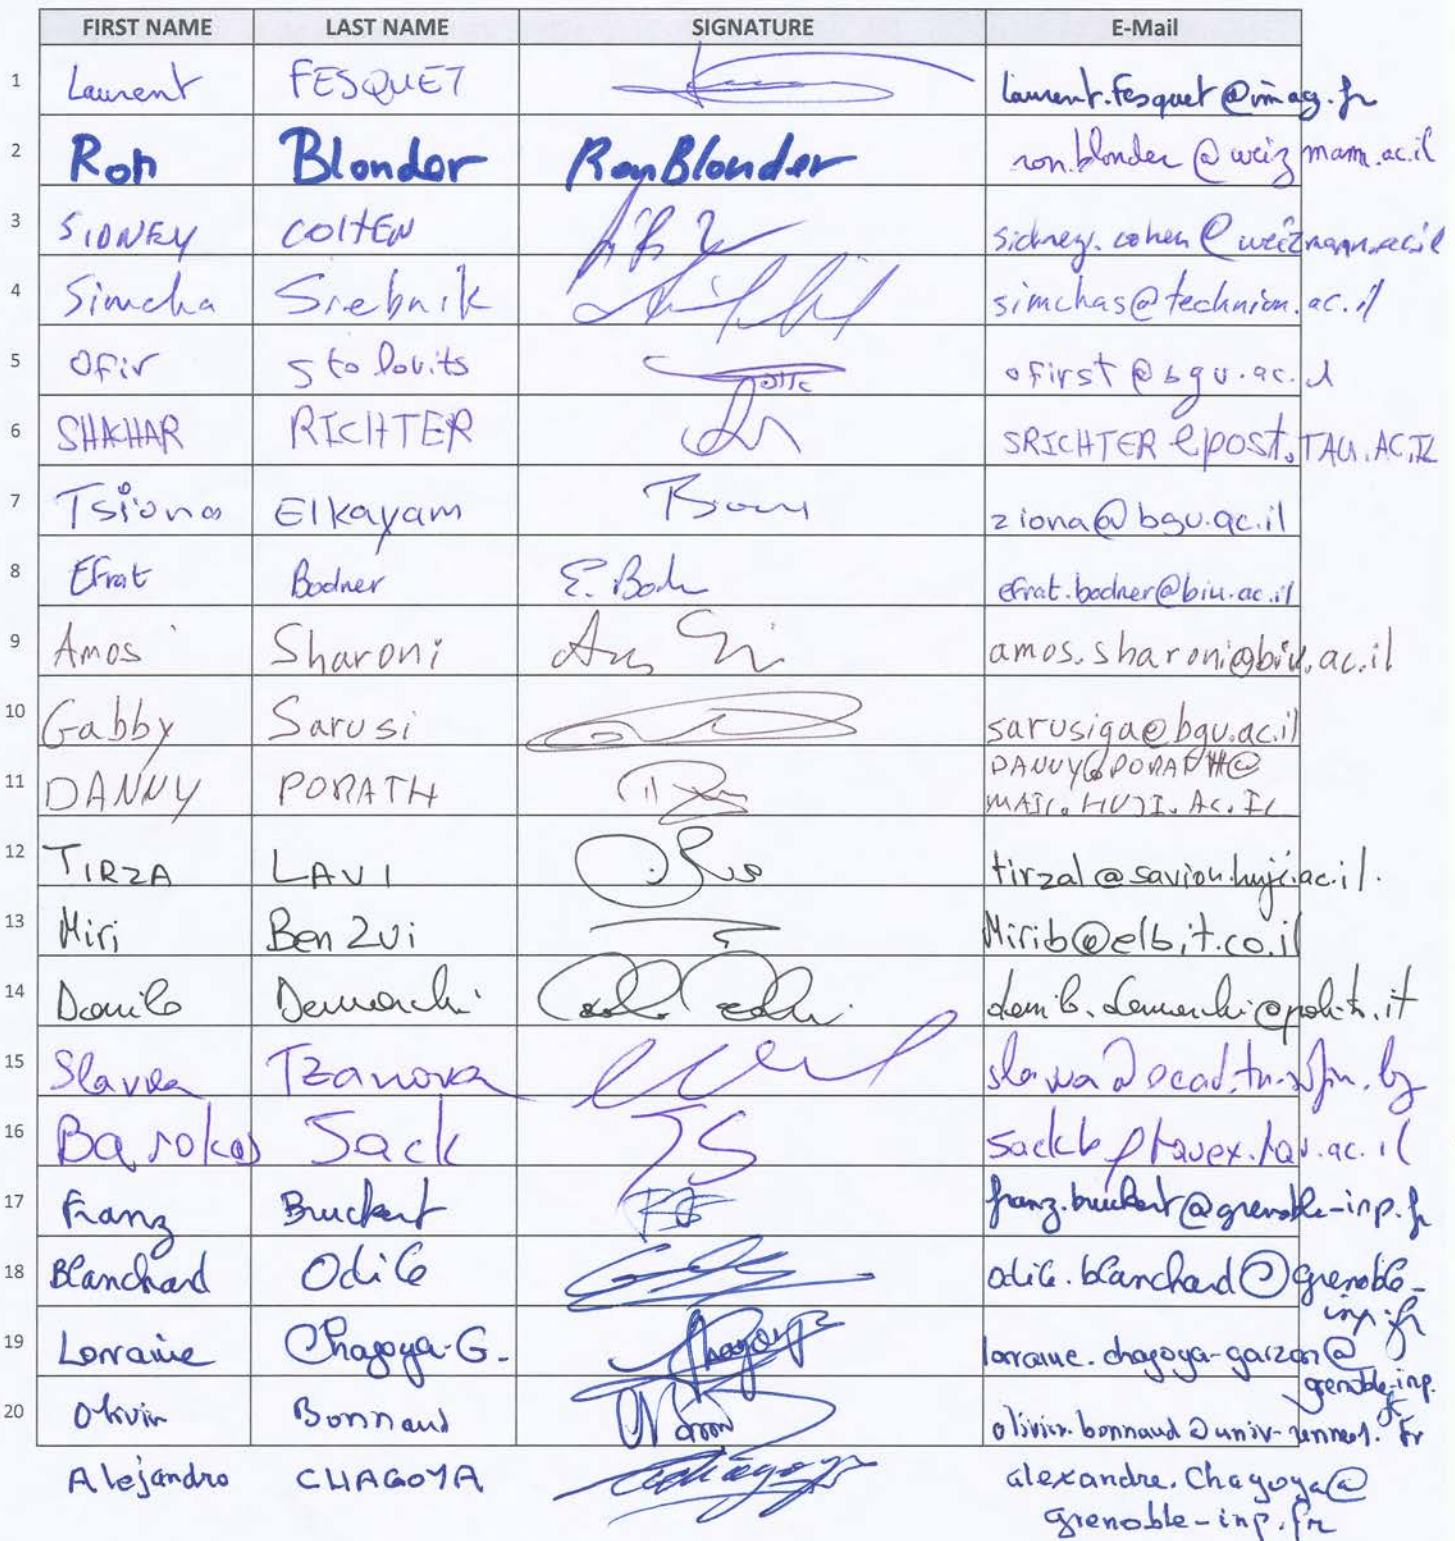 FIRST NAME LAST NAME SIGNATURE E-Mail
1 Laurent FESQUET laurent.fesquet@imag.fr
2 Ron Blonder Ron Blonder ron.blonder@weizmann.ac.il
3 SIDNEY COHEN sidney.cohen@weizmann.ac.il
4 Simcha Srebnik simchas@technion.ac.il
5 Ofir stolovits ofirst@bgu.ac.il
6 SHAKHAR RICHTER SRICHTER@post.TAU.AC.IL
7 Tsiona Elkayam ziona@bgu.ac.il
8 Efrat Bodner E. Bod efrat.bodner@biu.ac.il
9 Amos Sharoni amos.sharoni@biu.ac.il
10 Gabby Sarusi sarusiga@bgu.ac.il
11 DANNY PORATH DANNY.PORATH@
MAIL.HUJI.AC.IL
12 TIRZA LAVI tirzal@savion.huji.ac.il.
13 Miri Ben Zvi Mirib@elbit.co.il
14 Danilo Demarchi danilo.demarchi@polito.it
15 Slavka Tzanova
16 Sack
17 Franz Bruckert franz.bruckert@grenoble-inp.fr
18 Blanchard Odile odile.blanchard@grenoble-
inp.fr
19 Lorraine Chagoya-G. lorraine.chagoya-garzon@
grenoble-inp.fr
20 Olivier Bonnaud olivier.bonnaud@univ-rennes1.fr
Alejandro CHAGOYA alexandre.Chagoya@
grenoble-inp.fr